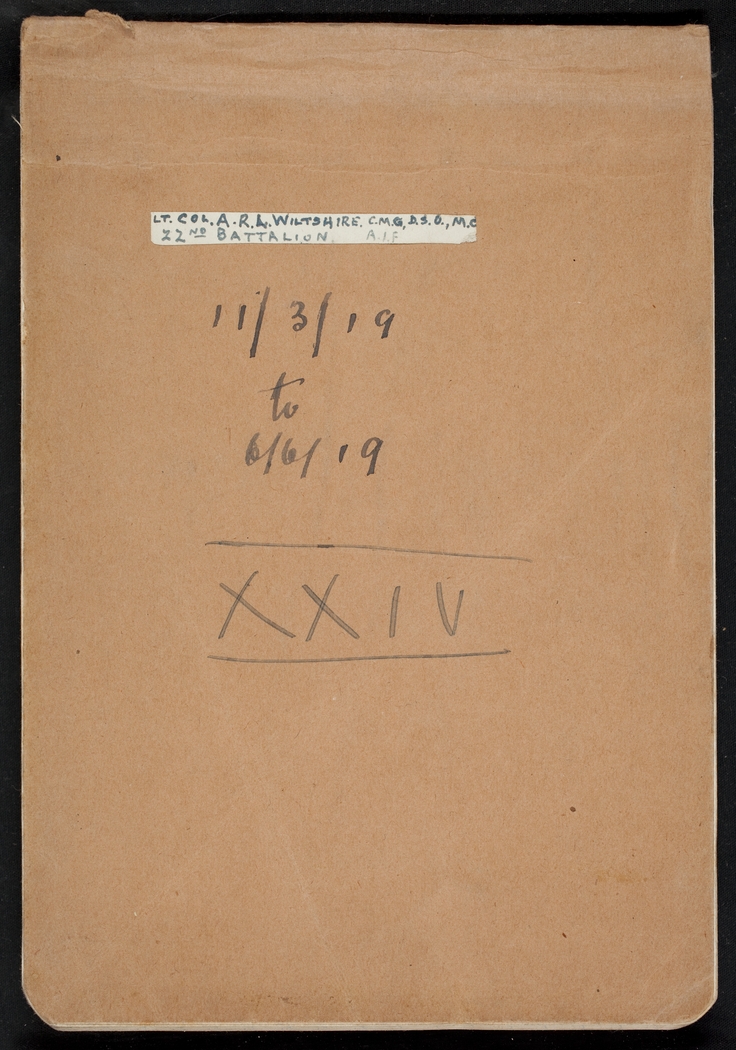 LT. COL. A. R. L. WILTSHIRE. C.M.G, D.S.O., M.C
22ND BATTALION. A.I.F
11/3/19
to
6/6/19
XXIV